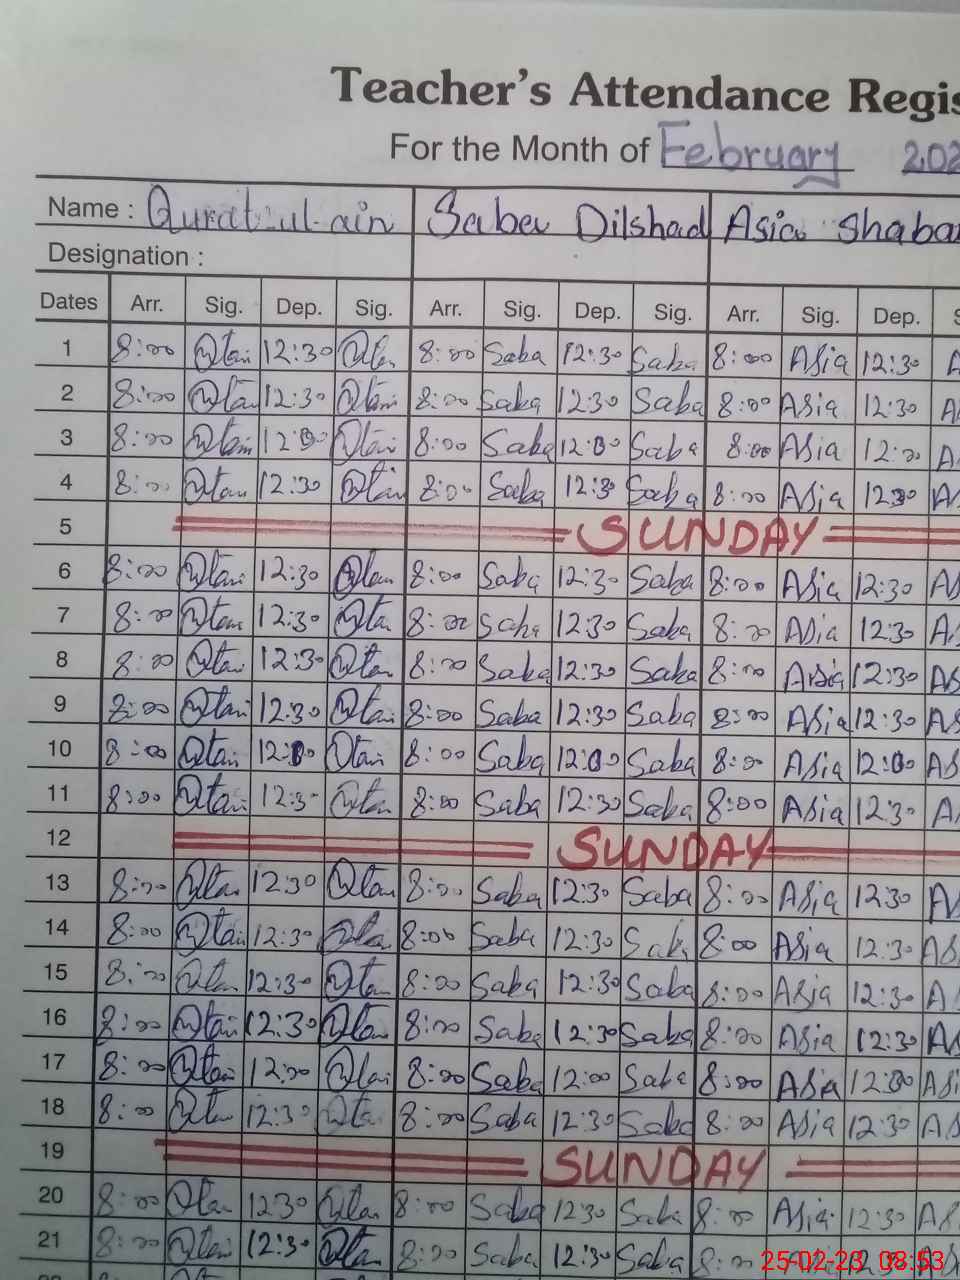 Teacher's Attendance Regis
For the Month of February 202
Name : Qurat-ul-ain Saba Dilshad Asia Shaba
Designation :
Dates Arr. Sig. Dep. Sig. Arr. Sig. Dep. Sig. Arr. Sig. Dep. S
1 8:00 12:30 8:00 Saba 12:30 Saba 8:00 Asia 12:30 A
2 8:00 12:30 8:00 Saba 12:30 Saba 8:00 Asia 12:30 A
3 8:00 12:00 8:00 Saba 12:00 Saba 8:00 Asia 12:00 A
4 8:00 12:30 8:00 Saba 12:30 Saba 8:00 Asia 12:30 As
5 SUNDAY
6 8:00 12:30 8:00 Saba 12:30 Saba 8:00 Asia 12:30 As
7 8:00 12:30 8:00 Saba 12:30 Saba 8:00 Asia 12:30 As
8 8:00 12:30 8:00 Saba 12:30 Saba 8:00 Asia 12:30 As
9 8:00 12:30 8:00 Saba 12:30 Saba 8:00 Asia 12:30 As
10 8:00 12:00 8:00 Saba 12:00 Saba 8:00 Asia 12:00 As
11 8:00 12:30 8:00 Saba 12:30 Saba 8:00 Asia 12:30 A
12 SUNDAY
13 8:00 12:30 8:00 Saba 12:30 Saba 8:00 Asia 12:30 A
14 8:00 12:30 8:00 Saba 12:30 Saba 8:00 Asia 12:30 As
15 8:00 12:30 8:00 Saba 12:30 Saba 8:00 Asia 12:30 A
16 8:00 12:30 8:00 Saba 12:30 Saba 8:00 Asia 12:30 As
17 8:00 12:00 8:00 Saba 12:00 Saba 8:00 Asia 12:00 Asi
18 8:00 12:30 8:00 Saba 12:30 Saba 8:00 Asia 12:30 As
19 SUNDAY
20 8:00 12:30 8:00 Saba 12:30 Saba 8:00 Asia 12:30 As
21 8:00 12:30 8:00 Saba 12:30 Saba 8:00
25-02-23 08:53